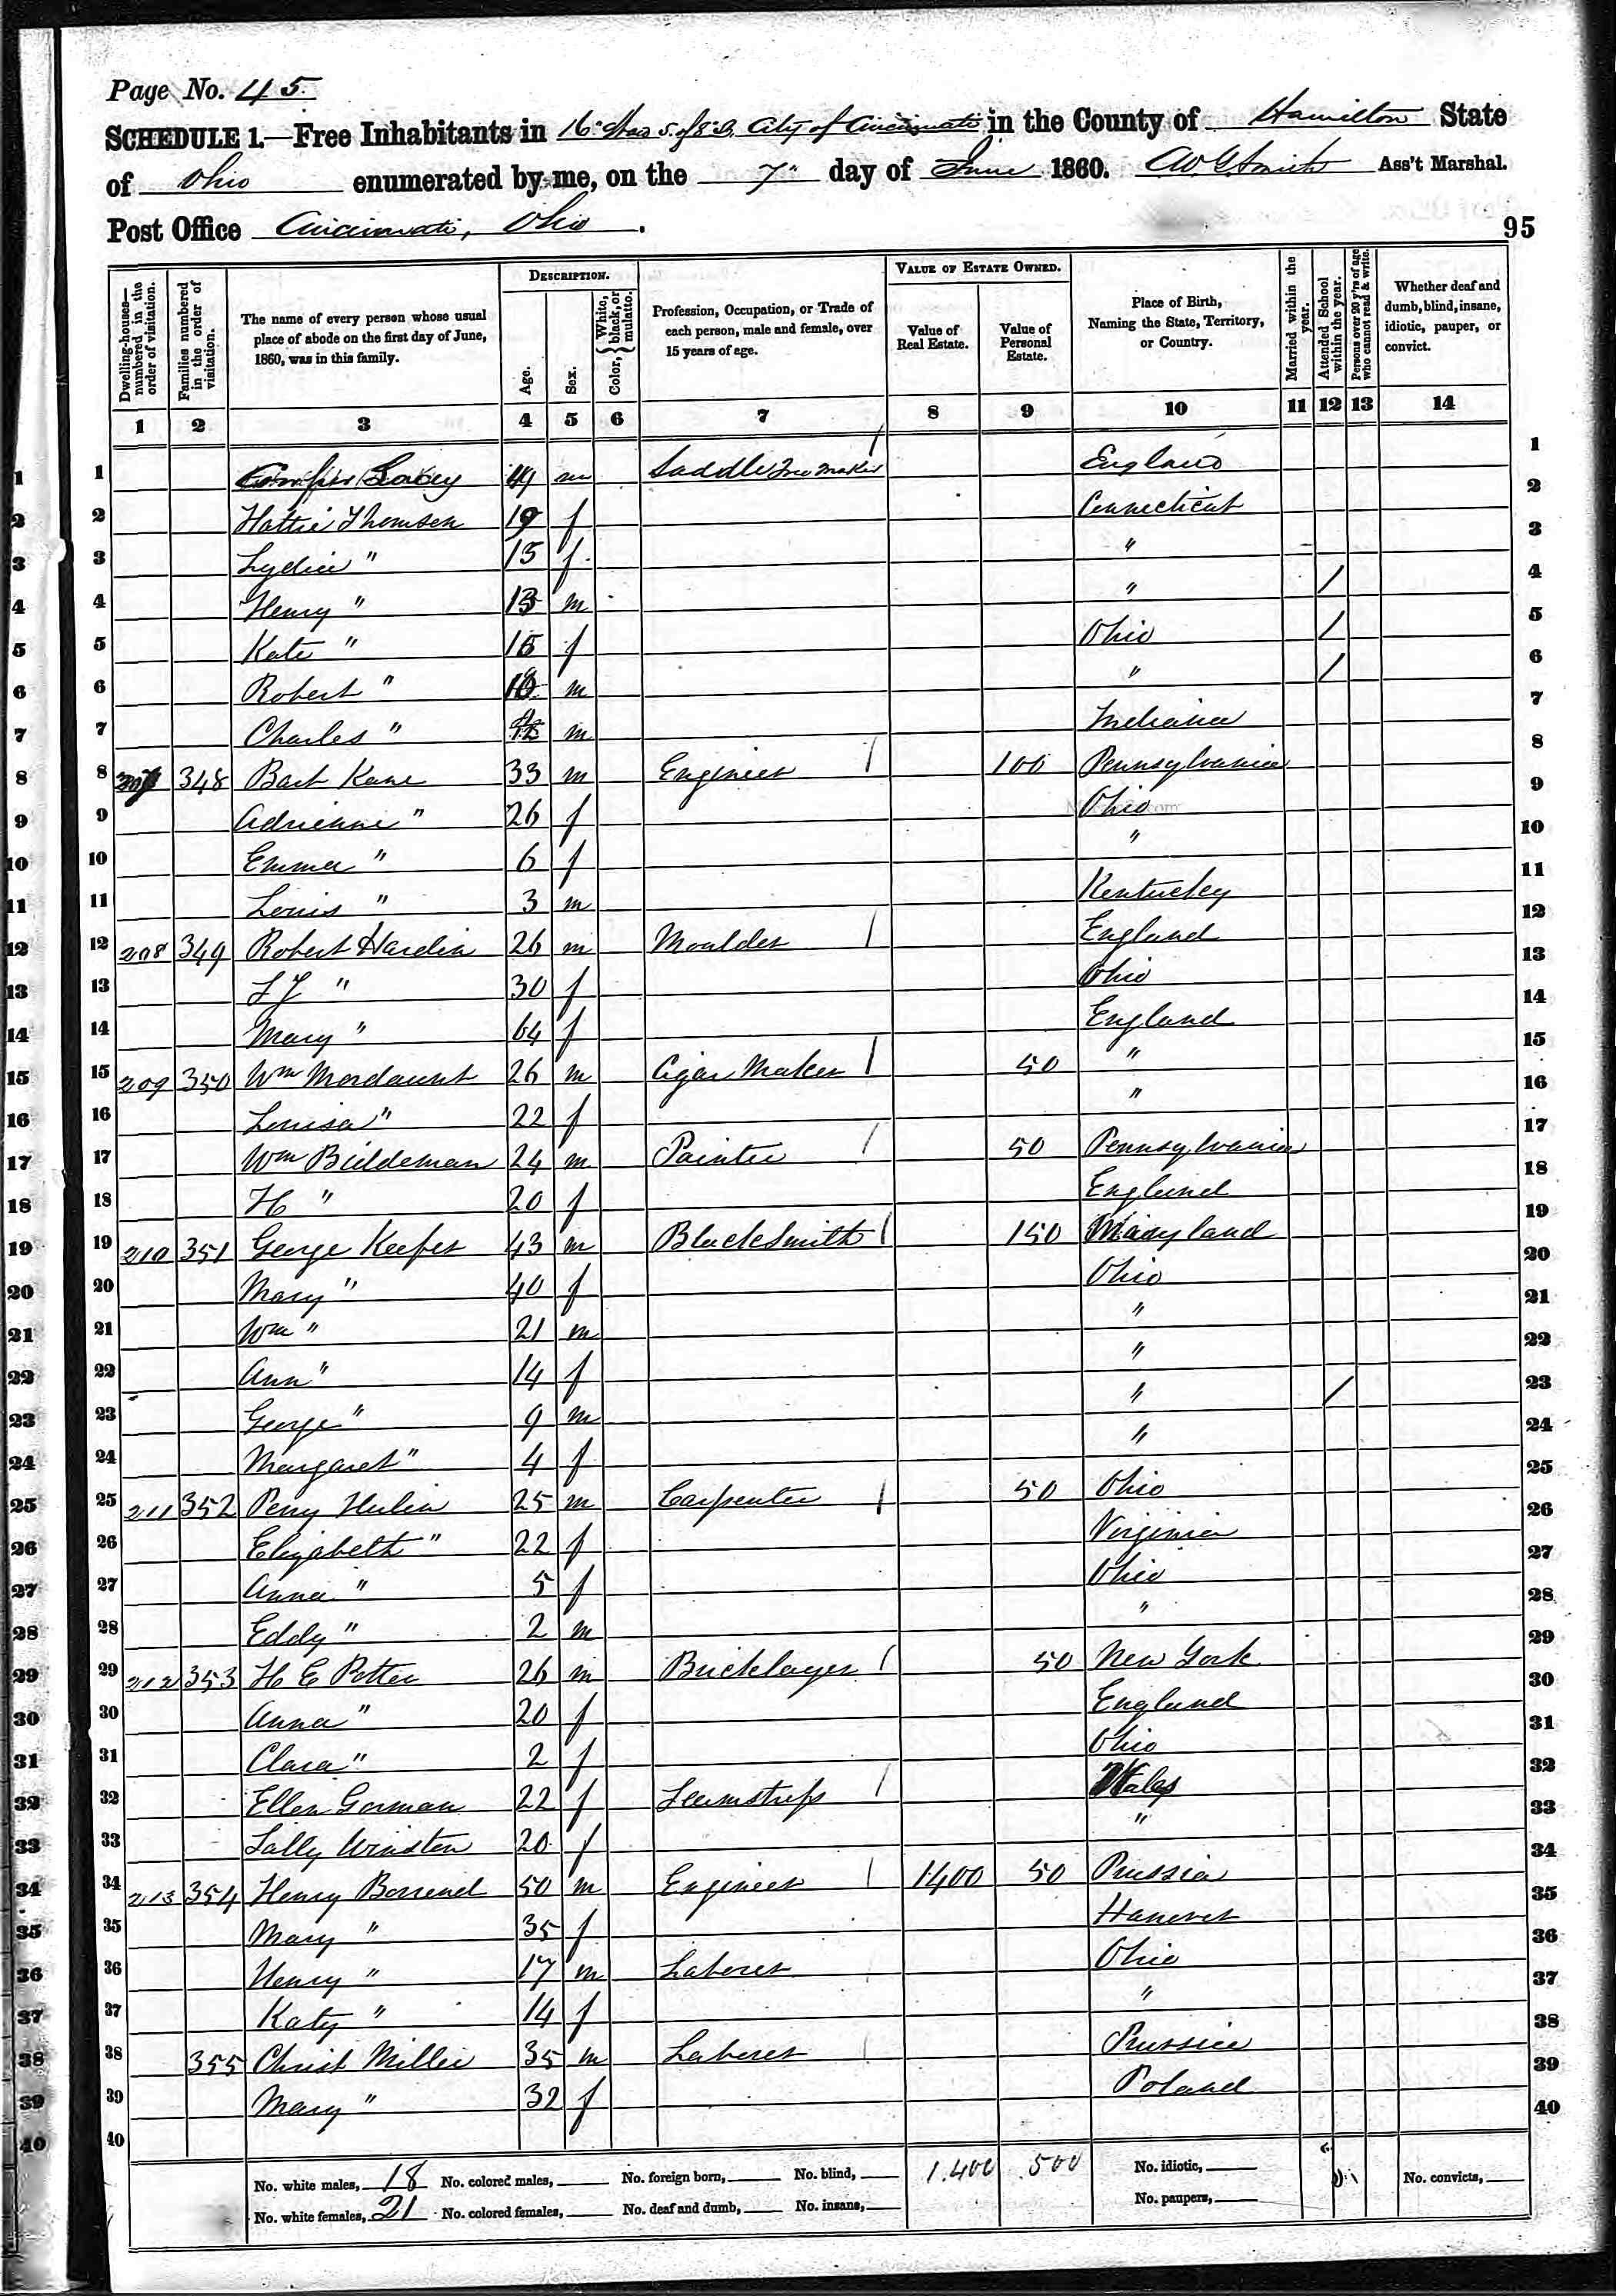 Page No. 45.
SCHEDULE 1.—Free Inhabitants in 16" Ward City of Cincinnati in the County of Hamilton State
of Ohio enumerated by me, on the 7" day of June 1860. Smith Ass't Marshal.
Post Office Cincinnati, Ohio.
95
Dwelling-houses—numbered in the order of visitation.
Families numbered in the order of visitation.
The name of every person whose usual place of abode on the first day of June, 1860, was in this family.
DESCRIPTION.
Age.
Sex.
Color, { White, black, or mulatto.
Profession, Occupation, or Trade of each person, male and female, over 15 years of age.
VALUE OF ESTATE OWNED.
Value of Real Estate.
Value of Personal Estate.
Place of Birth, Naming the State, Territory, or Country.
Married within the year.
Attended School within the year.
Persons over 20 y'rs of age who cannot read & write.
Whether deaf and dumb, blind, insane, idiotic, pauper, or convict.
1 2 3 4 5 6 7 8 9 10 11 12 13 14
1 m Saddle Tree Maker / England 1
2 Hattie Thomson 19 f Connecticut 2
3 Lydia " 15 f " 3
4 Henry " 13 m " / 4
5 Kate " f Ohio / 5
6 Robert " m " / 6
7 Charles " m Indiana 7
8 207 348 Bart Kane 33 m Engineer / 100 Pennsylvania 8
9 Adrienne " 26 f Ohio 9
10 Emma " 6 f " 10
11 Louis " 3 m Kentucky 11
12 208 349 Robert Hardin 26 m Moulder / England 12
13 " 30 f Ohio 13
14 Mary " 64 f England 14
15 209 350 Wm Mordaunt 26 m Cigar Maker / 50 " 15
16 Louisa " 22 f " 16
17 Wm Bildeman 24 m Painter / 50 Pennsylvania 17
18 H " 20 f England 18
19 210 351 George Keefer 43 m Blacksmith / 150 Maryland 19
20 Mary " 40 f Ohio 20
21 Wm " 21 m " 21
22 Ann " 14 f " 22
23 George " 9 m " / 23
24 Margaret " 4 f " 24
25 211 352 Perry Hulin 25 m Carpenter / 50 Ohio 25
26 Elizabeth " 22 f Virginia 26
27 Anna " 5 f Ohio 27
28 Eddy " 2 m " 28
29 212 353 H E Potter 26 m Bricklayer / 50 New York 29
30 Anna " 20 f England 30
31 Clara " 2 f Ohio 31
32 Ellen Gorman 22 f Seamstress / Wales 32
33 Sally Winston 20 f " 33
34 213 354 Henry 50 m Engineer / 1400 50 Prussia 34
35 Mary " 35 f Hanover 35
36 Henry " 17 m Laborer Ohio 36
37 Katy " 14 f " 37
38 355 Christ Miller 35 m Laborer / Prussia 38
39 Mary " 32 f Poland 39
40 40
No. white males, 18 No. colored males, No. foreign born, No. blind, 1.400 500 No. idiotic, No. convicts,
No. white females, 21 No. colored females, No. deaf and dumb, No. insane, No. paupers,